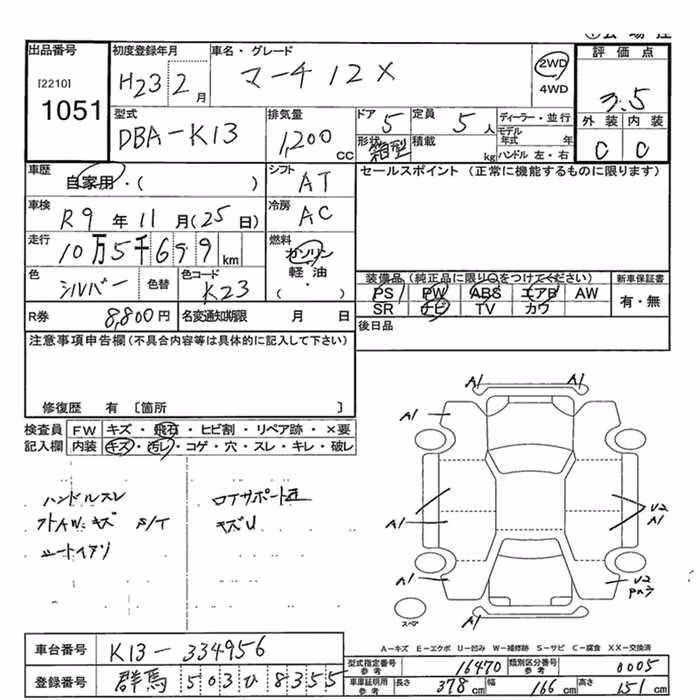 出品番号 初度登録年月 車名・グレード 評価点
[2210] H23 2月 マーチ 12X 2WD 3.5
1051 4WD
型式 排気量 ドア 定員 ディーラー・並行 外装 内装
DBA-K13 1,200 CC 5 5人 モデル年式 年 C C
形状 箱型 積載 kg ハンドル 左・右
車歴 自家用・( ) シフト AT セールスポイント (正常に機能するものに限ります)
車検 R9年11月(25日) 冷房 AC
走行 10万5千699km 燃料 ガソリン
軽油
・
( )
色 シルバー 色替 色コード K23 装備品(純正品に限り○をつけてください) 新車保証書
PS PW ABS エアB AW 有・無
SR ナビ TV カワ
R券 8,800円 名変通知期限 月 日 後日品
注意事項申告欄(不具合内容等は具体的に記入して下さい)
修復歴 有 〔箇所 〕
検査員 FW キズ・飛石・ヒビ割・リペア跡・×要
記入欄 内装 キズ・汚レ・コゲ・穴・スレ・キレ・破レ
A1 A1
A1
ハンドルスレ
キズU
S/T
A1 U2
A1
A1 U2
スペア
A1
A-キズ E-エクボ U-凹み W-補修跡 S-サビ C-腐食 XX-交換済
車台番号 K13-334956
型式指定番号 参考 16470 類別区分番号 参考 0005
登録番号 群馬 503 ひ 8355
車庫証明用 参考 長さ 378cm 幅 166cm 高さ 151cm